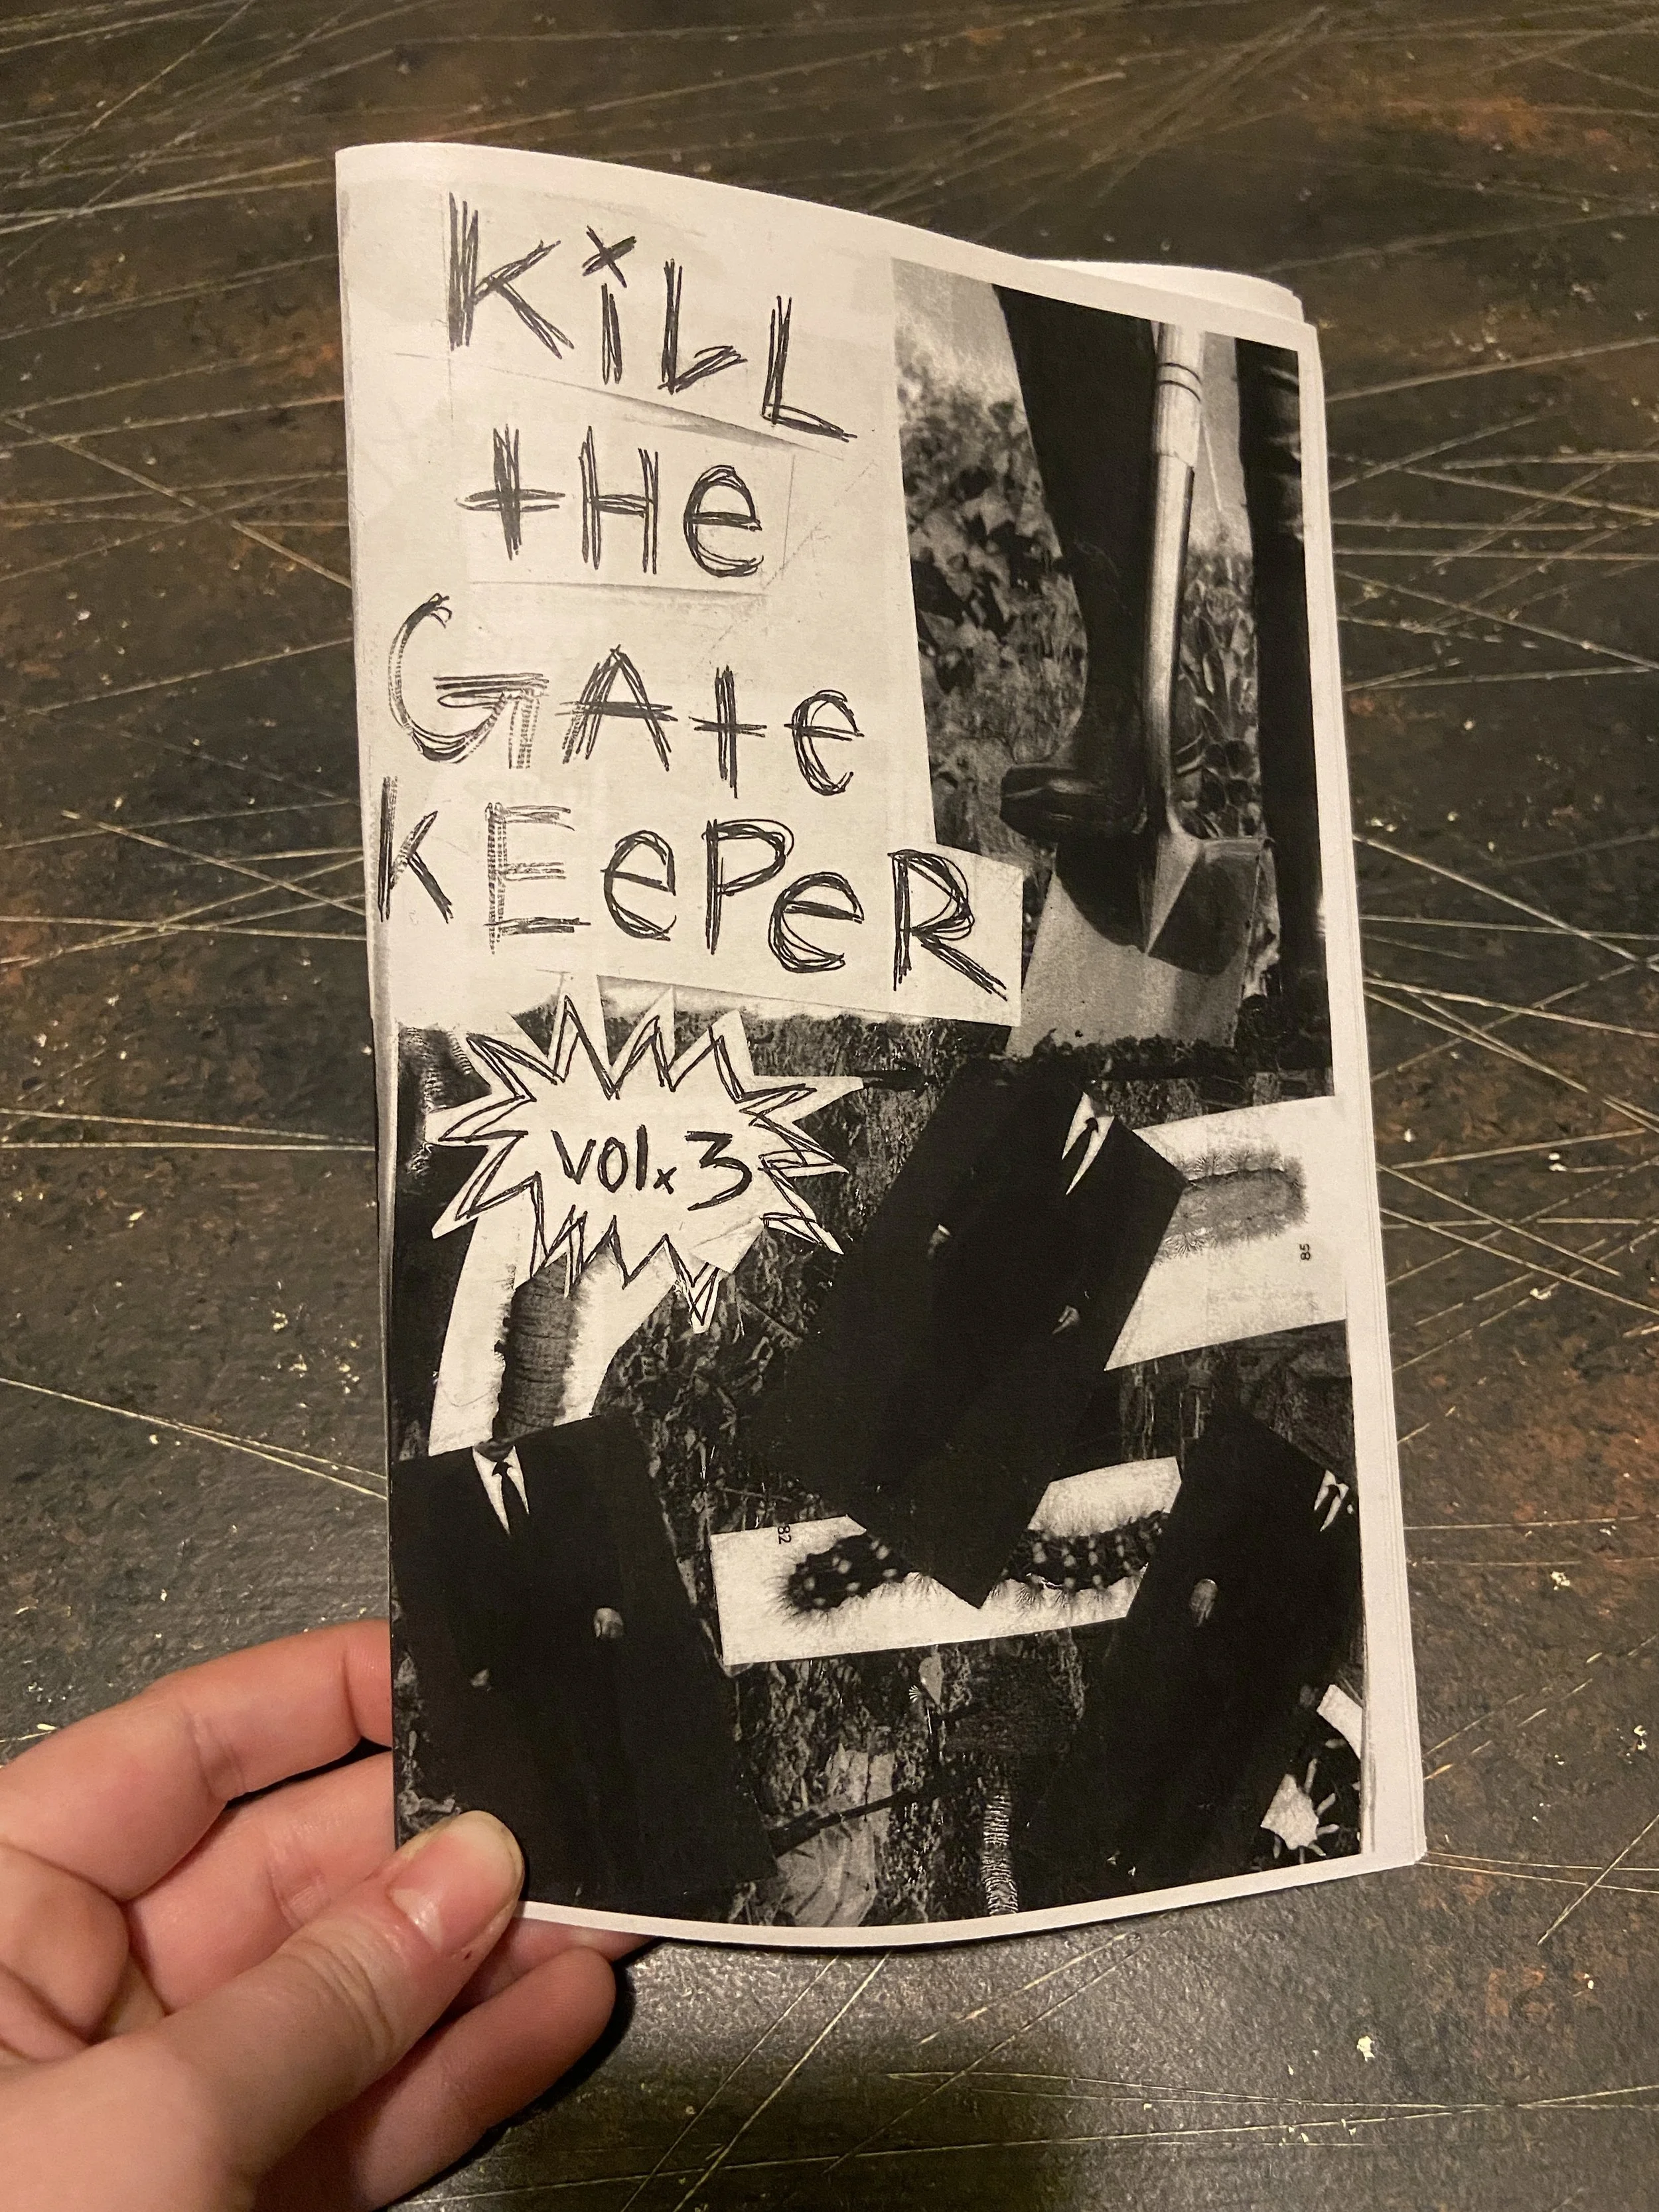 KiLL
tHe
GAte
KEePeR
vol. 3
85
82